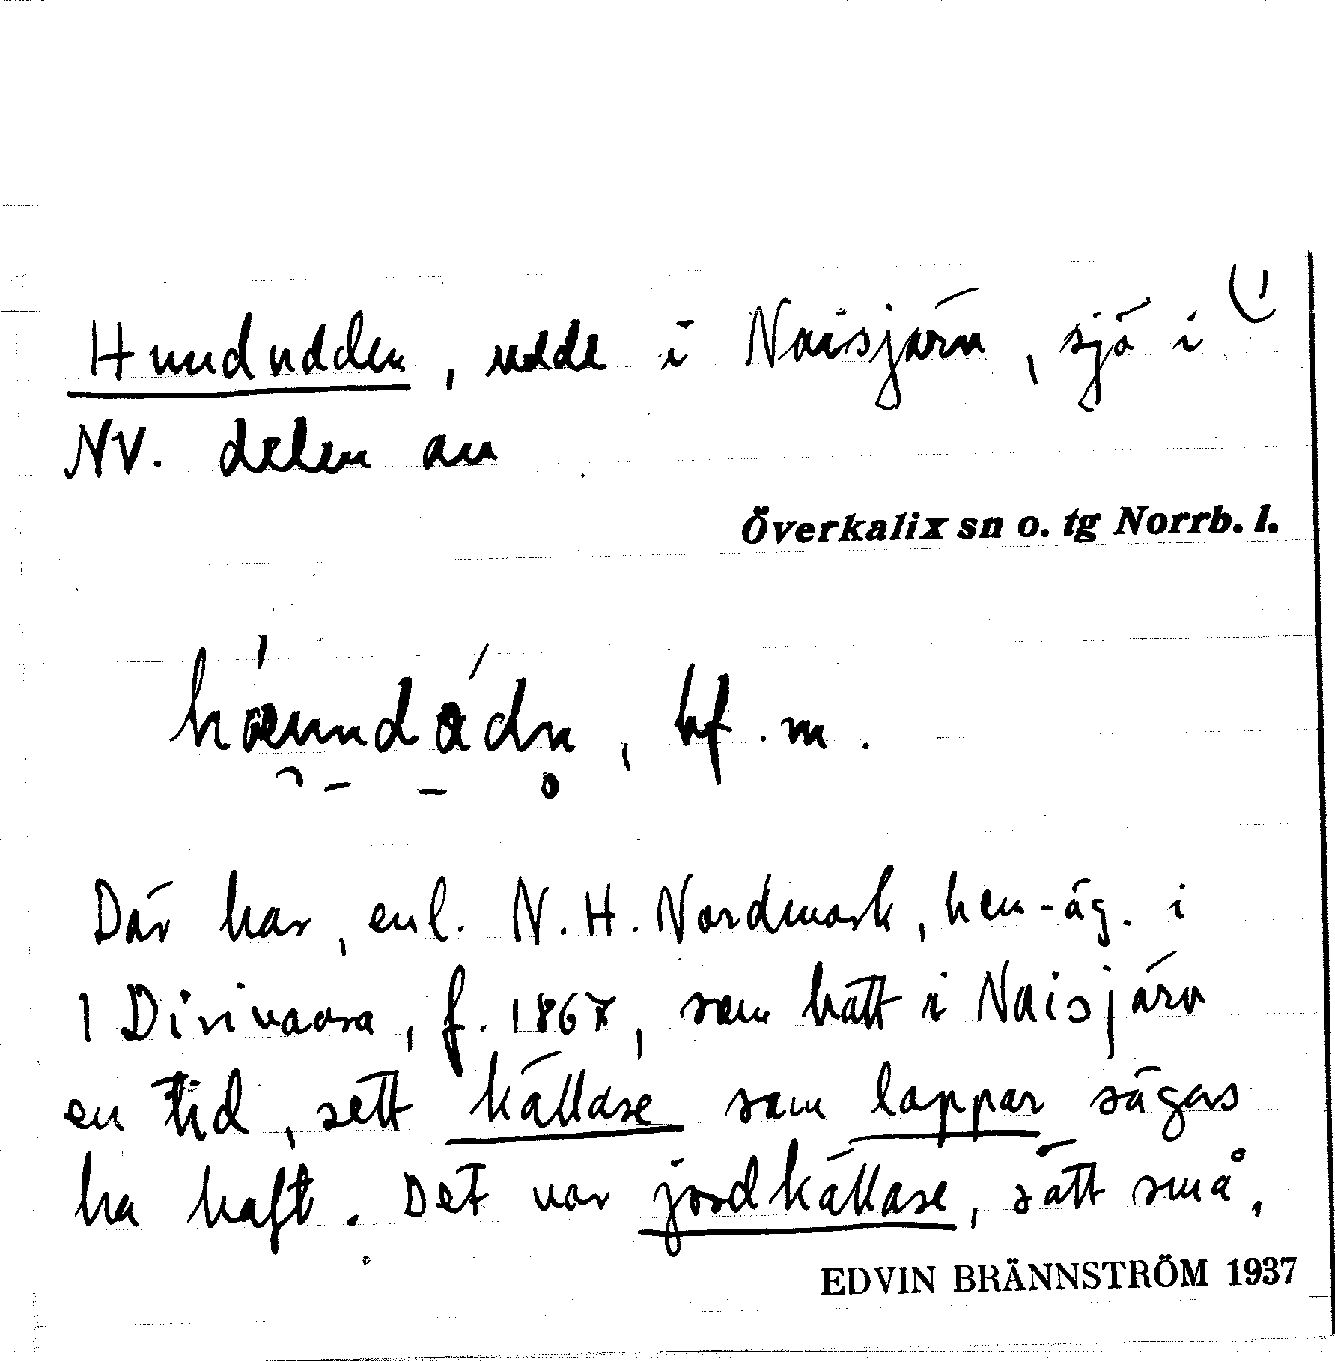 Hundudden, udde i Naisjärv, sjö i (1
NV. delen av
Överkalix sn o. tg Norrb. l.
bf. m.
Där har, enl. N. H. Nordmark, hem-äg. i
Dirivaara, f. 1867, som hatt i Naisjärv
en tid, sett källare som lappar sägas
ha haft. Det var jordkällare, sått små,
EDVIN BRÄNNSTRÖM 1937